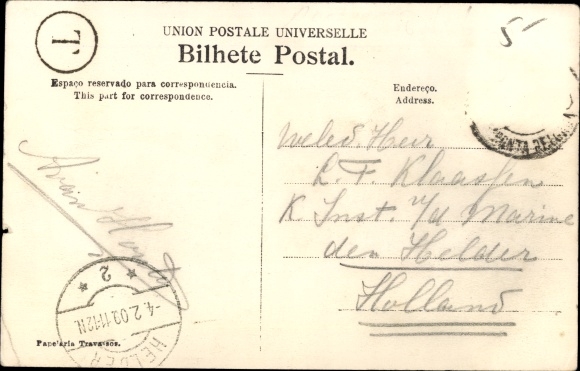 T
UNION POSTALE UNIVERSELLE
Bilhete Postal.
5
Espaço reservado para correspondencia.
This part for correspondence.
Endereço.
Address.
PONTA DELGADA
Weled Heer
L F. Klaassen
K Inst. v/d Marine
den Helder
Holland
2
-4.2.09.11-12N
HELDER
Papelaria Travassos.